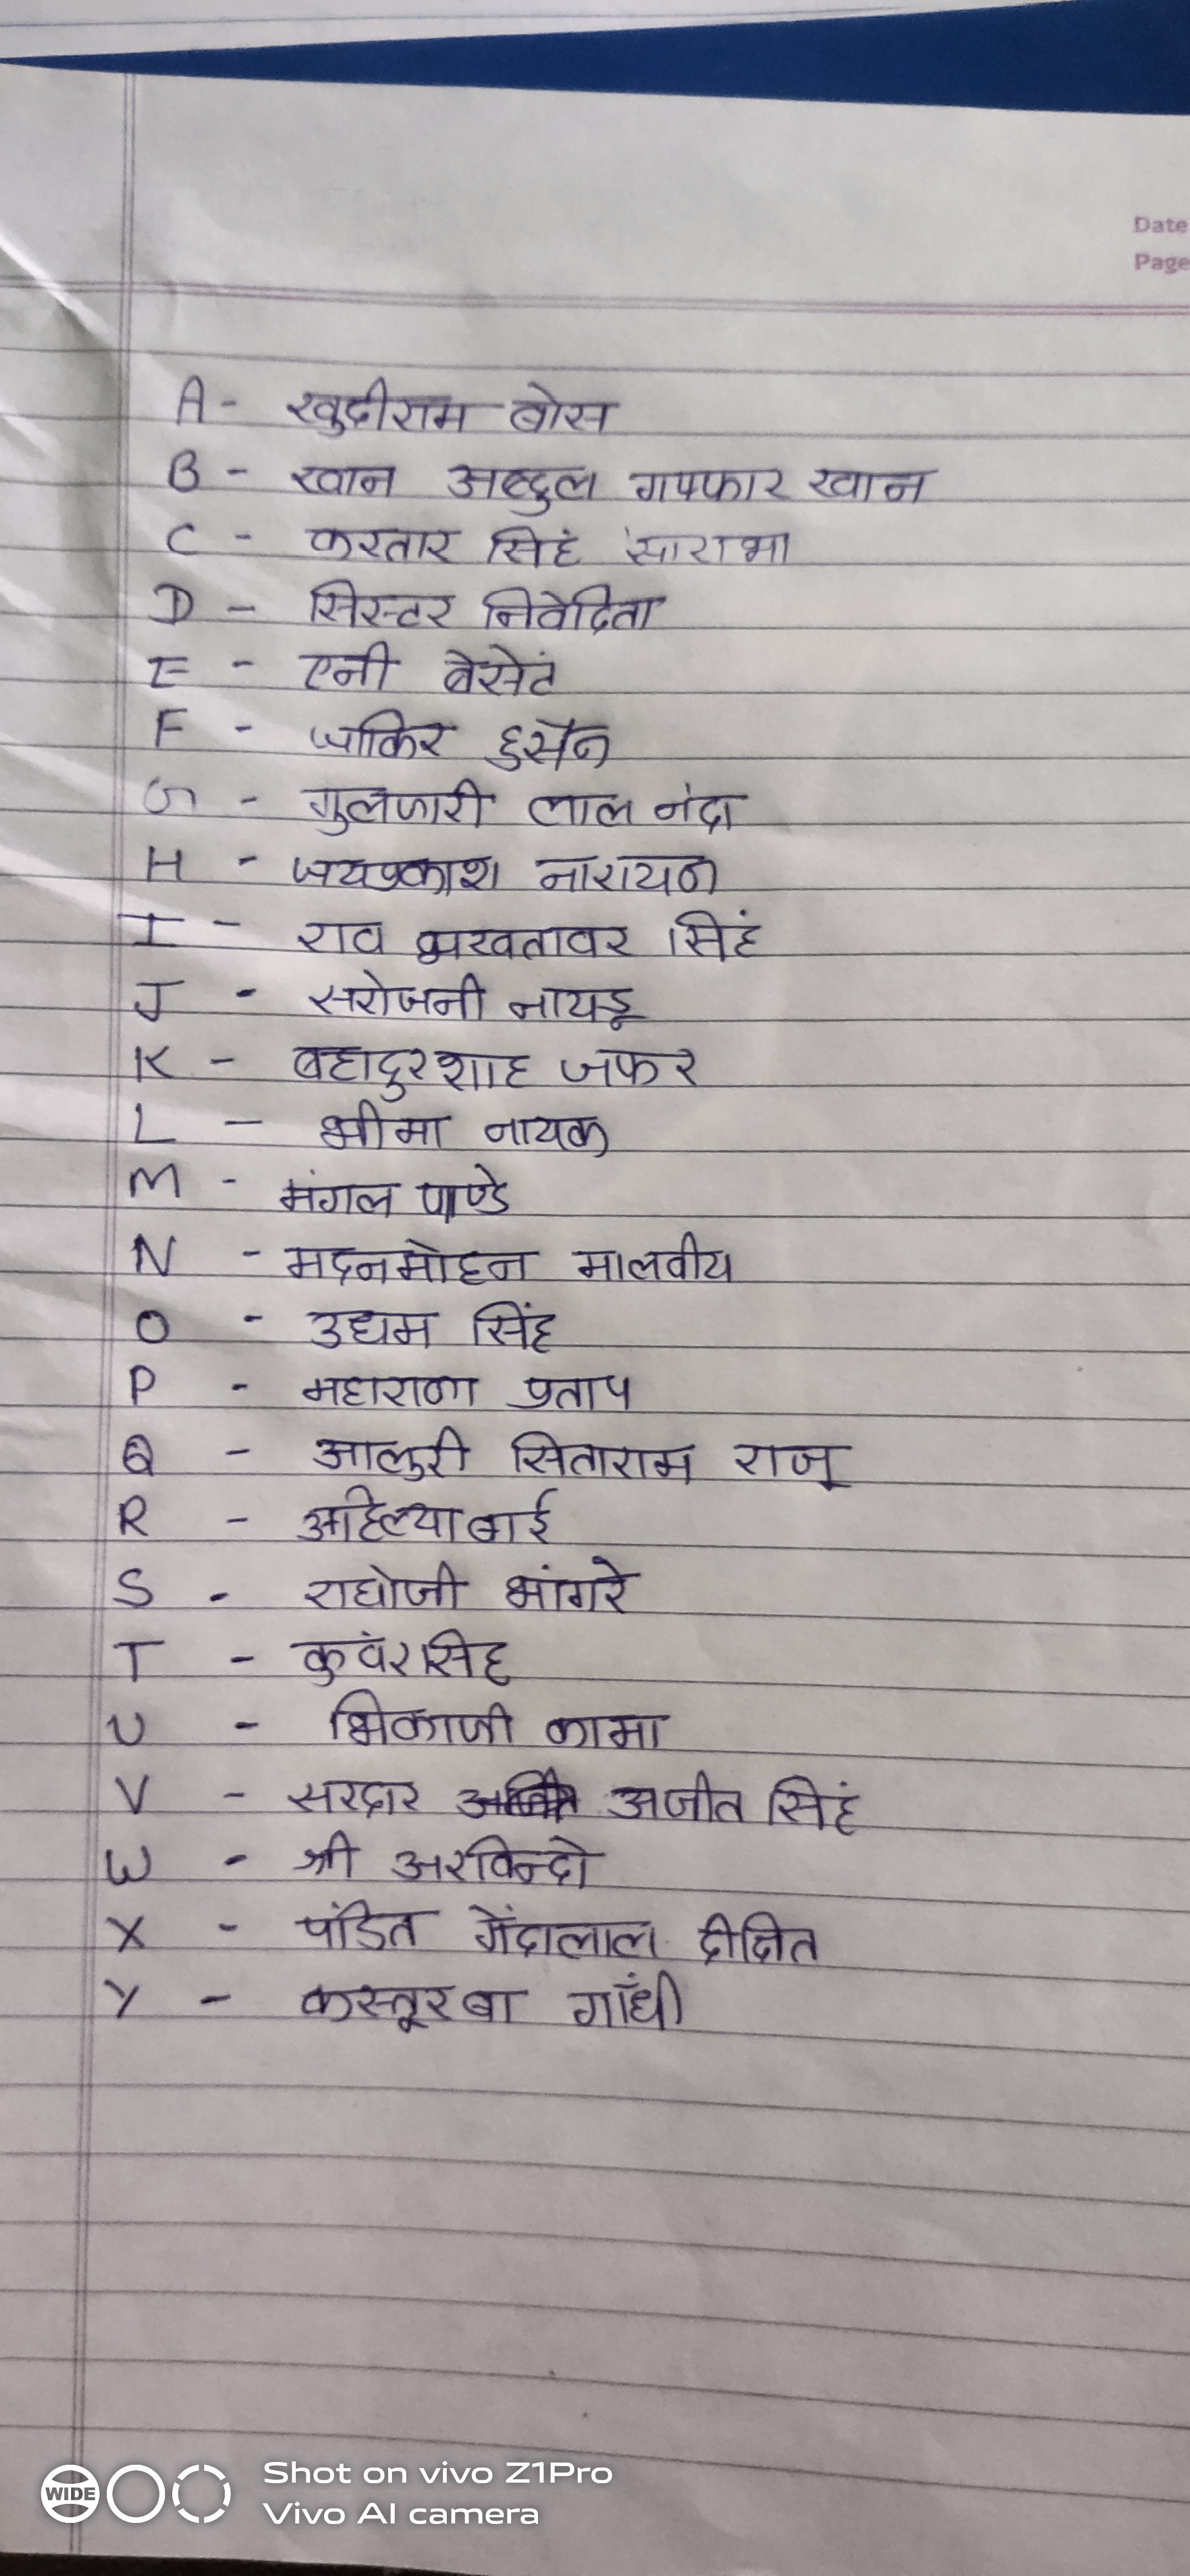 Date
Page
A - खुदीराम बोस
B - खान अब्दुल गफ्फार खान
C - करतार सिहं साराभा
D - सिस्टर निवेदिता
E - एनी बेसेटं
F - जाकिर हुसैन
G - गुलजारी लाल नंदा
H - जयप्रकाश नारायण
I - राव बखतावर सिहं
J - सरोजनी नायडू
K - बहादुरशाह जफर
L - भीमा नायक
M - मंगल पाण्डे
N - मदनमोहन मालवीय
O - उधम सिंह
P - महाराणा प्रताप
Q - आलुरी सिताराम राजू
R - अहिल्याबाई
S - राघोजी भांगरे
T - कुवंरसिह
U - भिकाजी कामा
V - सरदार अजीत सिहं
W - श्री अरविन्दो
X - पंडित गेंदालाल दीक्षित
Y - कस्तूरबा गाँधी
WIDE
Shot on vivo Z1Pro
Vivo AI camera